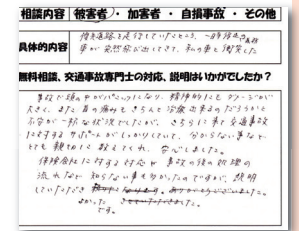 相談内容 被害者・加害者・自損事故・その他
具体的内容 優先道路を走行していたところ、一時停止の
車が突然飛び出してきて、私の車と衝突した
無料相談、交通事故専門士の対応、説明はいかがでしたか？
事故で頭の中がパニックになり、精神的にもダメージが
大きく、また首の痛みもきちんと治療出来るのだろうかと
不安が一杯な状況でしたが、さらに来て交通事故
に対するサポートがしっかりしていて、分からない事など
とても親切に教えてくれ、安心しました。
保険会社に対する対応や事故の後の処理の
流れなど知らない事も多かったのですが、説明
していただき ありがとうございました。
よかった
です。